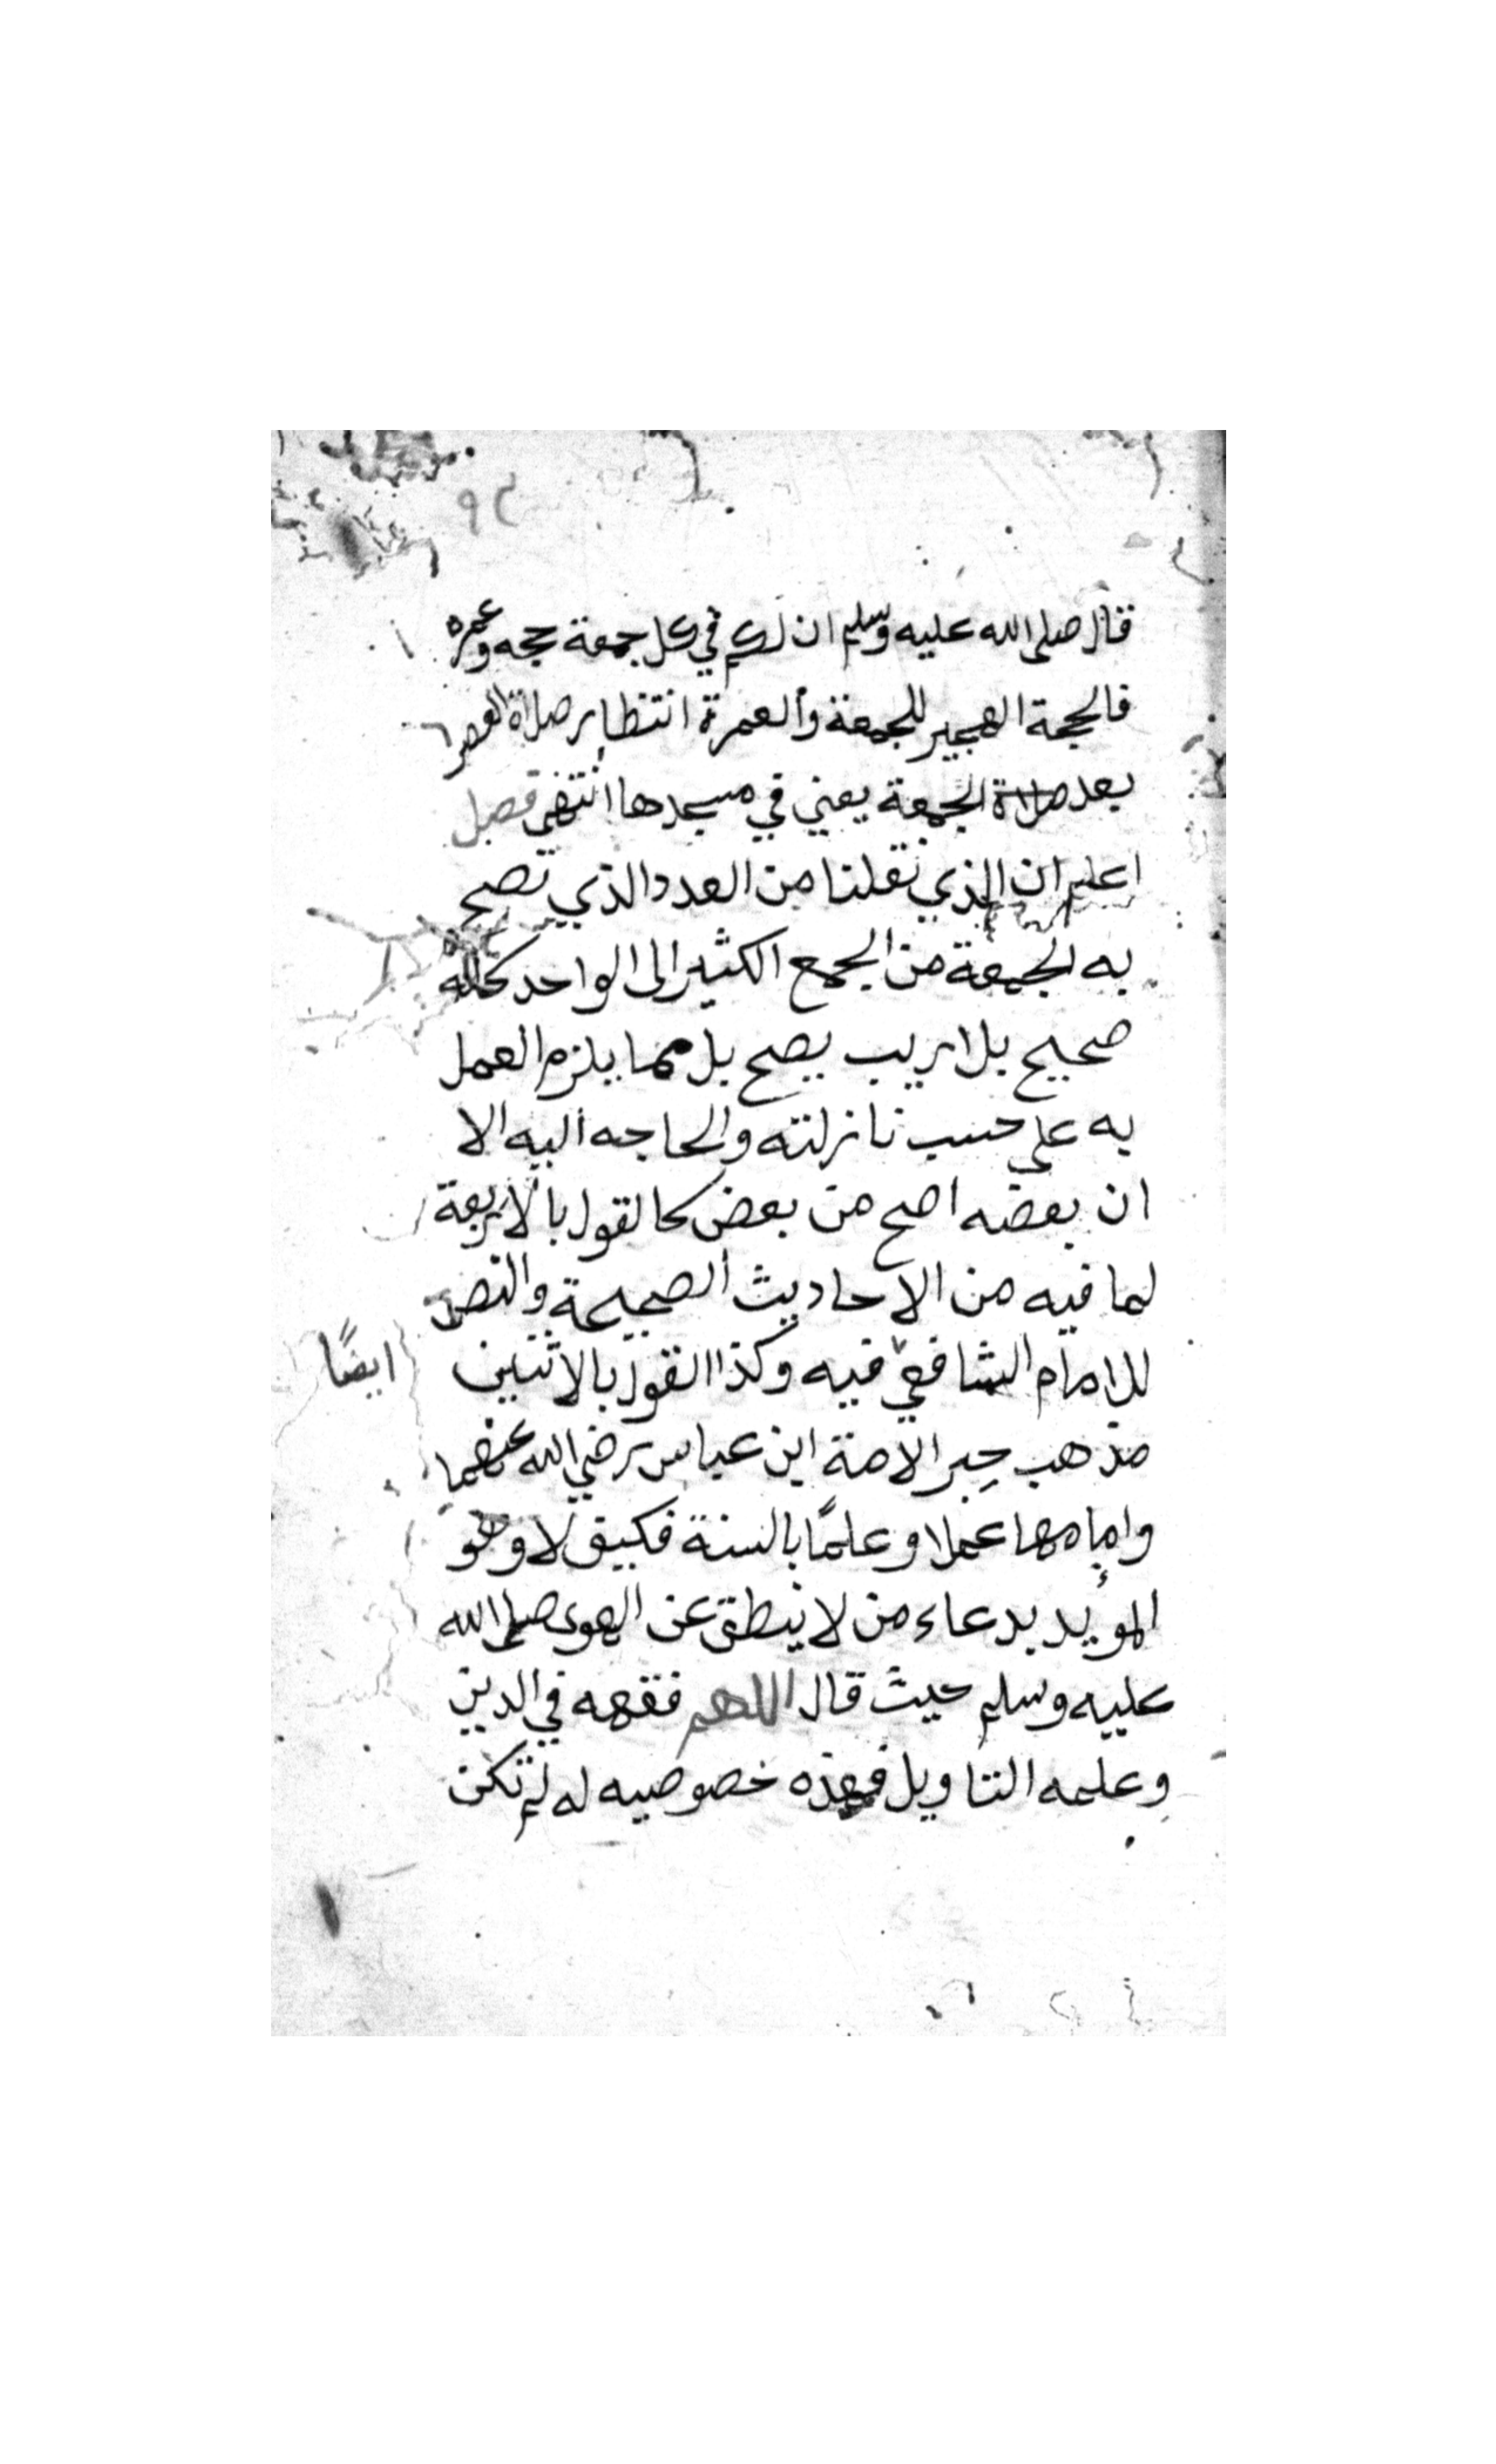 ٩٣
قال صلى الله عليه وسلم ان لكم في كل جمعة حجه وعمره
فالحجة الهجير للجمعة والعمرة انتظار صلاة العصر
بعد صلاة الجمعة يعني في مسجدها انتهى فصل
اعلم ان الذي نقلنا من العدد الذي تصح
به الجمعة من الجمع الكثير الى الواحد كله
صحيح بلا ريب يصح بل مما يلزم العمل
به على حسب نازلته والحاجه اليه الا
ان بعضه اصح من بعض كالقول بالاربعة
لما فيه من الاحاديث الصحيحة والنص
للامام الشافعي فيه وكذا القول بالاثنين ايضًا
مذهب حِبر الامة ابن عباس رضي الله عنهما
وامامها عملا وعلمًا بالسنة فكيف لا وهو
المؤيد بدعاء من لا ينطق عن الهوى صلى الله
عليه وسلم حيث قال اللهم فقهه في الدين
وعلمه التاويل فهذه خصوصيه له لم تكن